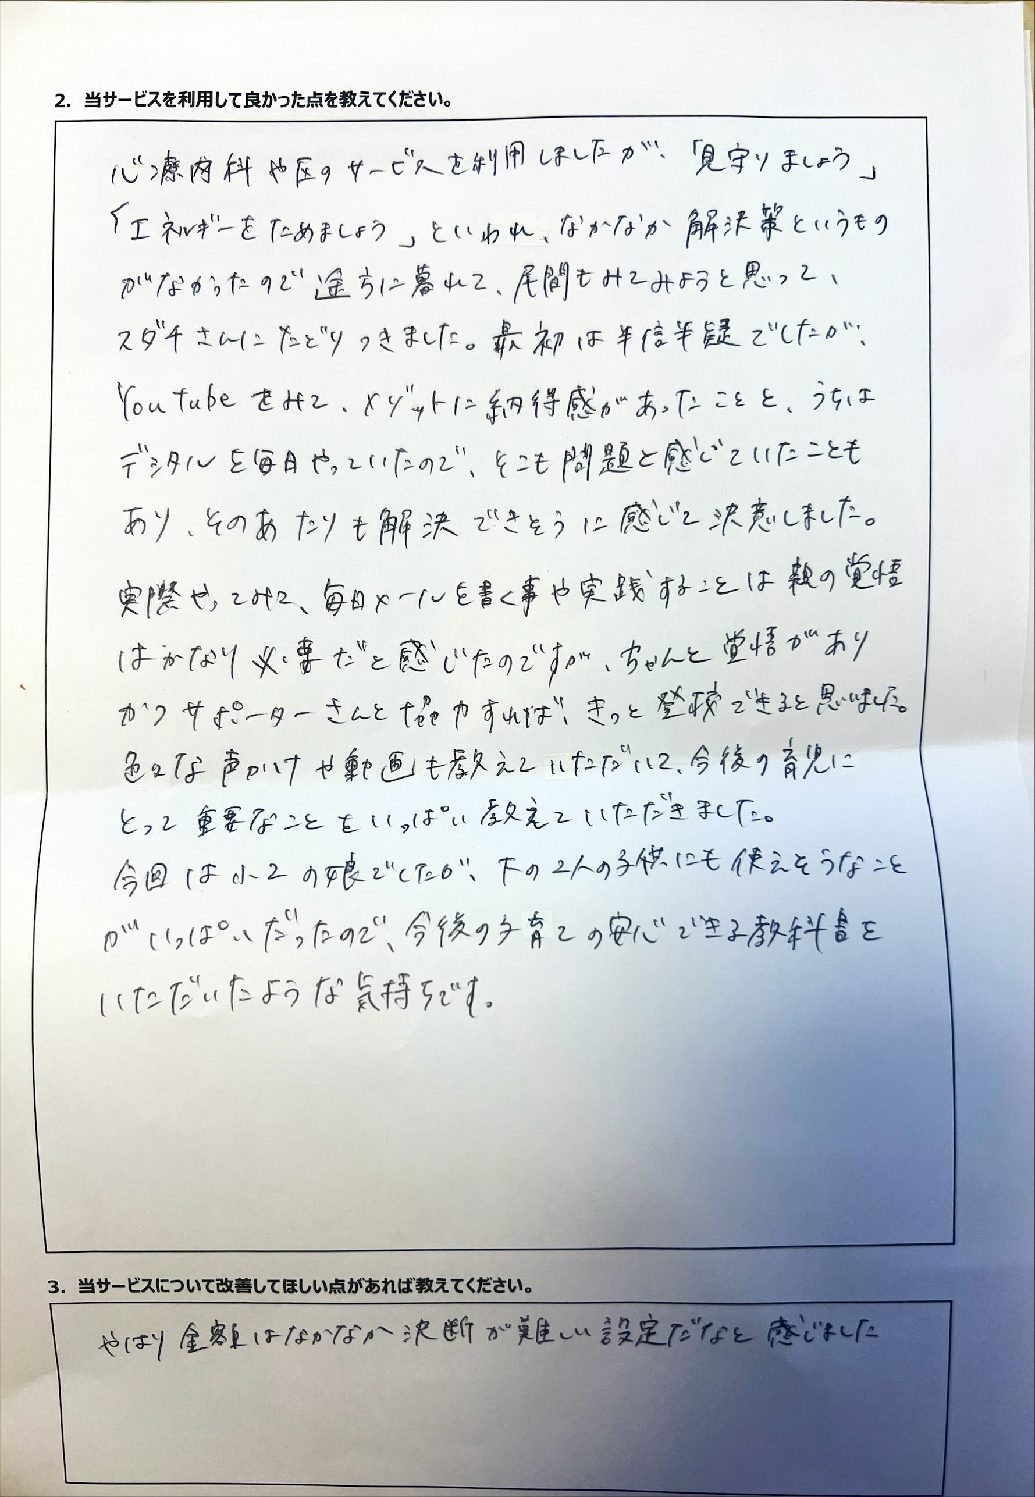 2. 当サービスを利用して良かった点を教えてください。
心療内科や区のサービスを利用しましたが、「見守りましょう」
「エネルギーをためましょう」といわれ、なかなか解決策というもの
がなかったので途方に暮れて、民間もみてみようと思って、
スダチさんにたどりつきました。最初は半信半疑でしたが、
YouTubeをみて、メソッドに納得感があったことと、うちは
デジタルを毎日やっていたので、そこも問題と感じていたことも
あり、そのあたりも解決できそうに感じて決意しました。
実際やってみて、毎日メールを書く事や実践することは親の覚悟
はかなり必要だと感じたのですが、ちゃんと覚悟があり
かつサポーターさんと協力すれば、きっと登校できると思いました。
色々な声かけや動画も教えていただいて、今後の育児に
とって重要なことをいっぱい教えていただきました。
今回は小2の娘でしたが、下の2人の子供にも使えそうなこと
がいっぱいだったので、今後の子育ての安心できる教科書を
いただいたような気持ちです。
3. 当サービスについて改善してほしい点があれば教えてください。
やはり金額はなかなか決断が難しい設定だなと感じました